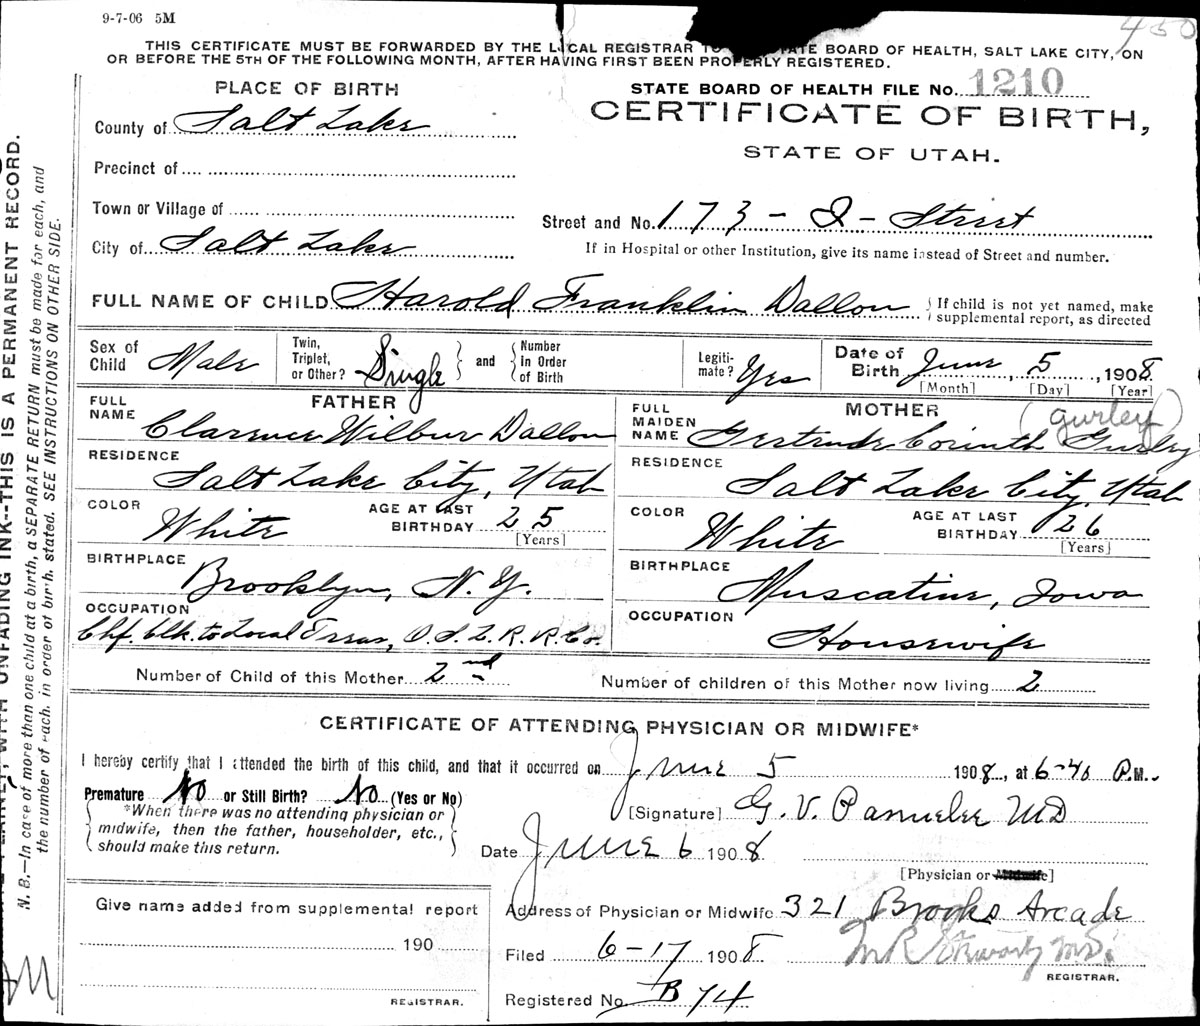 9-7-06 5M
450
THIS CERTIFICATE MUST BE FORWARDED BY THE LOCAL REGISTRAR TO STATE BOARD OF HEALTH, SALT LAKE CITY, ON
OR BEFORE THE 5TH OF THE FOLLOWING MONTH, AFTER HAVING FIRST BEEN PROPERLY REGISTERED.
PLACE OF BIRTH
STATE BOARD OF HEALTH FILE No. 1210
CERTIFICATE OF BIRTH,
STATE OF UTAH.
County of Salt Lake
Precinct of
Town or Village of
Street and No. 173 - I - Street
City of Salt Lake
If in Hospital or other Institution, give its name instead of Street and number.
FULL NAME OF CHILD Harold Franklin Dallon
If child is not yet named, make
supplemental report, as directed
Sex of Child Male
Twin, Triplet, or Other? Single
and
Number in Order of Birth
Legiti-mate? Yes
Date of Birth June 5, 1908
[Month] [Day] [Year]
FATHER
FULL NAME Clarence Wilbur Dallon
MOTHER (Gurley)
FULL MAIDEN NAME Gertrude Corinth Gurley
RESIDENCE Salt Lake City, Utah
RESIDENCE Salt Lake City, Utah
COLOR White
AGE AT LAST BIRTHDAY 25
[Years]
COLOR White
AGE AT LAST BIRTHDAY 26
[Years]
BIRTHPLACE Brooklyn, N.Y.
BIRTHPLACE Muscatine, Iowa
OCCUPATION Chf. Clk. to Local Treas, O.S.L.R.R.Co.
OCCUPATION Housewife
Number of Child of this Mother 2nd
Number of children of this Mother now living 2
CERTIFICATE OF ATTENDING PHYSICIAN OR MIDWIFE*
I hereby certify that I attended the birth of this child, and that it occurred on June 5 1908, at 6-40 P.M.
Premature No or Still Birth? No (Yes or No)
*When there was no attending physician or
midwife, then the father, householder, etc.,
should make this return.
[Signature] G. V. Parmelee MD
Date June 6 1908
[Physician or Midwife]
Give name added from supplemental report
190
REGISTRAR.
Address of Physician or Midwife 321 Brooks Arcade
Filed 6-17 1908
REGISTRAR.
Registered No. B 74
N. B.—In case of more than one child at a birth, a SEPARATE RETURN must be made for each, and
the number of each, in order of birth, stated. SEE INSTRUCTIONS ON OTHER SIDE.
WITH UNFADING INK--THIS IS A PERMANENT RECORD.